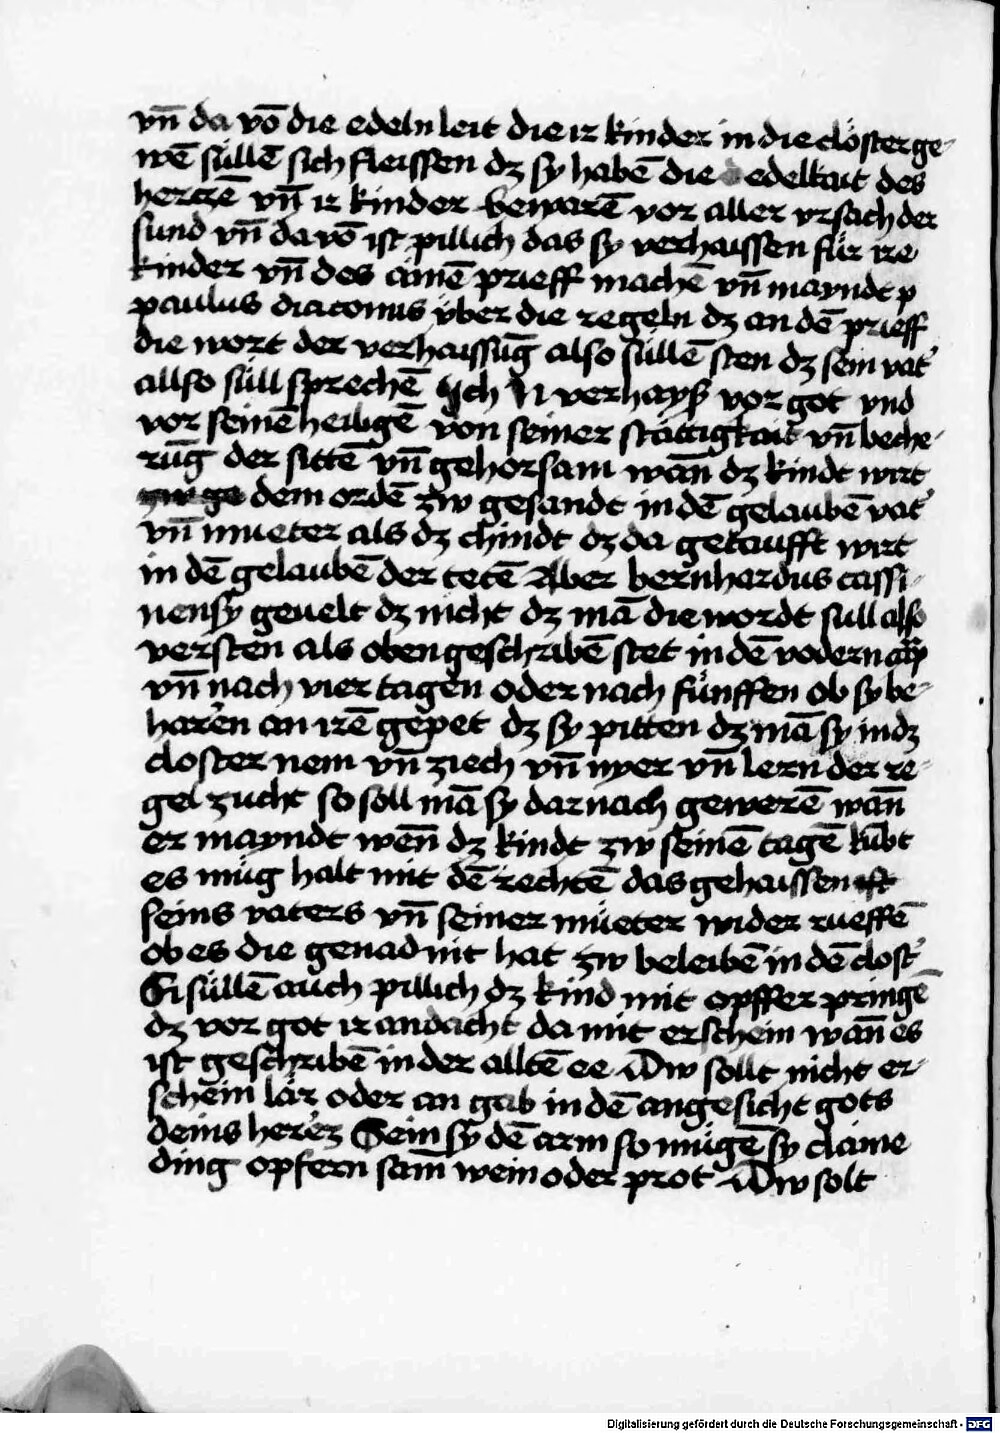 vn̄ da vō die edeln leit die ir kinder in die clöster ge-
wē süllē sich fleissen dz sy habē die edelkait des
hertzē vn̄ ir kinder bewarē vor aller vrsach der
sund vn̄ da vō ist pillich das sy verhaissen für ire
kinder vn̄ des ainē prieff machē vn̄ mayndt p
paulus diaconus vber die regeln dz an dē prieff
die wort der verhaissūg also süllē sten dz sein vat'
allso süll sprechē Ich N verhayß vor got vnd
vor seinē heiligē von seiner stättigkait vn̄ beche-
rūg der sittē vn̄ gehorsam wān dz kindt wirt
dem ordē zw gesandt in dē gelaubē vat'
vn̄ mueter als dz chindt dz da getaufft wirt
in dē gelaubē der tetē Aber bernhardus cassi-
nensy geuelt dz nicht dz mā die wordt sull also
versten als oben geschribē stet in dē vodern
vn̄ nach vier tagen oder nach fünffen ob sy be-
harēn an irē gepet dz sy pitten dz mā sy in dz
closter nem vn̄ ziech vn̄ nyer vn̄ lern der re-
gel zucht so soll mā sy dar nach gewerē wān
er mayndt wēn dz kindt zw seinē tagē kūbt
es müg halt mit dē rechtē das gehaissen
seins vaters vn̄ seiner müeter wider rueffē
ob es die genad nit hat zw beleibē in dē clost'
Si süllē auch pillich dz kind mit opffer pringē
dz vor got ir andacht da mit erschein wān es
ist geschribē in der alltē ee Dw sollt nicht er-
schein lär oder an gab in dē angesicht gots
deins herēz Sein sy dē arm so mügē sy claine
ding opfern sam̄ wein oder prot Dw solt
Digitalisierung gefördert durch die Deutsche Forschungsgemeinschaft - DFG